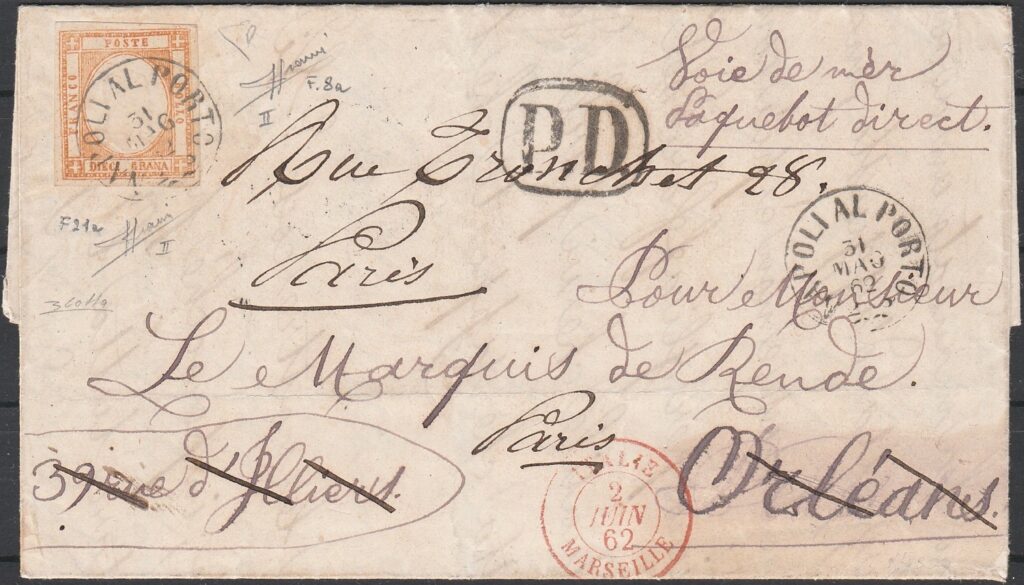 POSTE
FRANCO
DIECI GRANA
NAPOLI AL PORTO
31
MAG
II
F.8a
PD
Voie de mèr
Paquebot direct.
Rue Tronchet 28.
Paris
F21a
II
NAPOLI AL PORTO
31
MAG
62
Pour Monsieur
Le Marquis de Rende.
Paris
39 rue d'Illiers.
Orléans.
ITALIE
2
JUIN
62
MARSEILLE